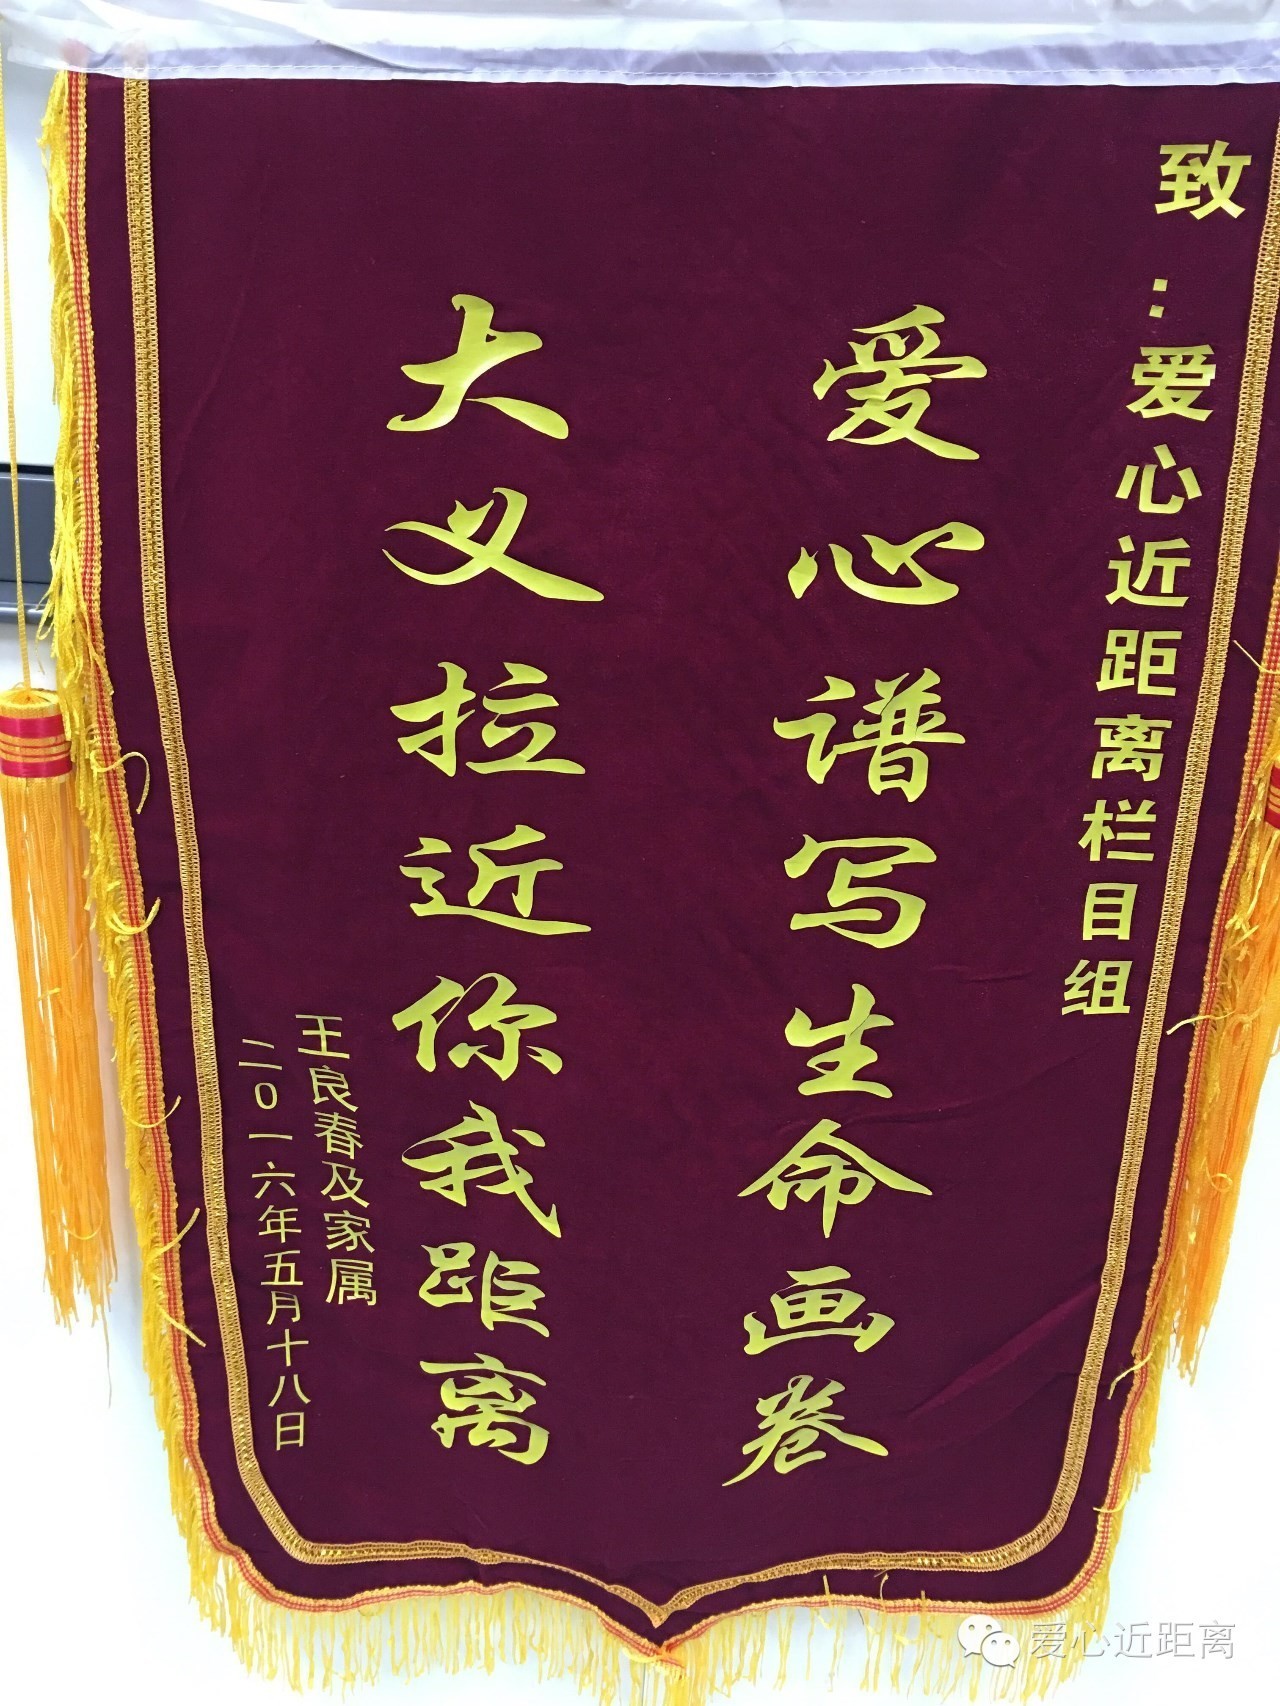 致：爱心近距离栏目组
爱心谱写生命画卷
大义拉近你我距离
王良春及家属
二0一六年五月十八日
爱心近距离